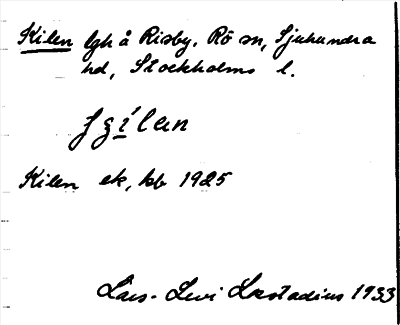 Kilen lgh å Risby. Rö sn, Sjuhundra
hd, Stockholms l.
Kilen ek, kb 1925
Lars-Levi Læstadius 1933